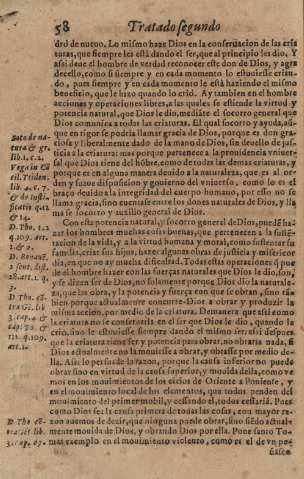 58 Tratado segundo
dró de nueuo. Lo mismo haze Dios en la conseruacion de las cria
turas, que siempre les està dando el ser, que al principio les dio. Y
assi deue el hombre de verdad reconocer este don de Dios, y agra
decello, como si siempre y en cada momento lo estuuiesse crian-
do, pues siempre y en cada momento le està haziendo el mismo
beneficio, que le hizo quando lo criò. Ay tambien en el hombre
acciones y operaciones libres, a las quales se estiende la virtud y
potencia natural, que Dios le dio, mediãte el socorro general que
Dios comunica a todas las criaturas. El qual socorro y ayuda, aũ-
que en rigor se podria llamar gracia de Dios, porque es don gra-
cioso y liberalmente dado de la mano de Dios, sin deuello de jus-
ticia a la criatura: mas porque pertenece a la prouidencia vniuer-
sal que Dios tiene del hõbre, como de todas las demas criaturas, y
porque es en alguna manera deuido a la naturaleza, que es al or-
den y suaue disposicion y gouierno del vniuerso, como lo es el
braço deuido a la integridad del cuerpo humano, por esso no se
llama gracia, sino cuentase entre los dones naturales de Dios, y llã
mase socorro y auxilio general de Dios.
Soto de na-
tura & gr.
lib.1.c.2.
Vega in Cõ
cil. Triden.
lib.
& de iusti-
ficatio q.12
& 14.
D. Tho. 1.2
q.109. art.
2. & 9.
D. Bonauẽ.
2 sent. dist.
28. art.1. q.
3.
D. Tho. cõ
tra Gẽ. lib.
3. cap.
cap. 70.
Con esta potencia natural, y socorro general de Dios, puedẽ ha-
zer los hombres muchas cosas buenas, que pertenecen a la susten-
tacion de la vida, y a la virtud humana y moral, como sustentar su
familia, criar sus hijos, hazer algunas obras de justicia y misericor-
dia, en que no ay mucha dificultad. Todas estas operaciones q pue
de el hombre hazer con las fuerças naturales que Dios le dio, son,
y se dizen ser de Dios, no solamente porque Dios dio la naturale-
za, que las obra, y la potencia y fuerça con que se obran, sino tã-
bien porque actualmente concurre Dios a obrar y produzir la
misma accion, por medio de la criatura. Demanera que assi como
la criatura no se conseruaria en el ser que Dios le dio, quando la
criò, sino le estuuiesse siempre dando el mismo ser: assi despues
que la criatura tiene ser y potencia para obrar, no obraria nada, si
Dios actualmente no la mouiesse a obrar, y obrasse por medio de-
lla. Assi lo persuade la razon, porque la causa inferior no puede
obrar sino en virtud de la causa superior, y mouida della, como ve
mos en los mouimientos de los cielos de Oriente a Poniente, y
en el mouimiento local de los elementos, que todos penden del
mouimiento del primer mobil, y cessando el, todos cessarià. Pues
como Dios sea la causa primera de todas las cosas, con mayor ra-
zon auemos de dezir, que ninguna puede obrar, sino siẽdo actual-
mente mouida de Dios, y obrando Dios por ella. Pone santo To-
mas exemplo en el mouimiento violento, como es el de vn pe-
D. Tho. cõ
tra Gẽt. lib.
3. cap. 67.
ñasco,